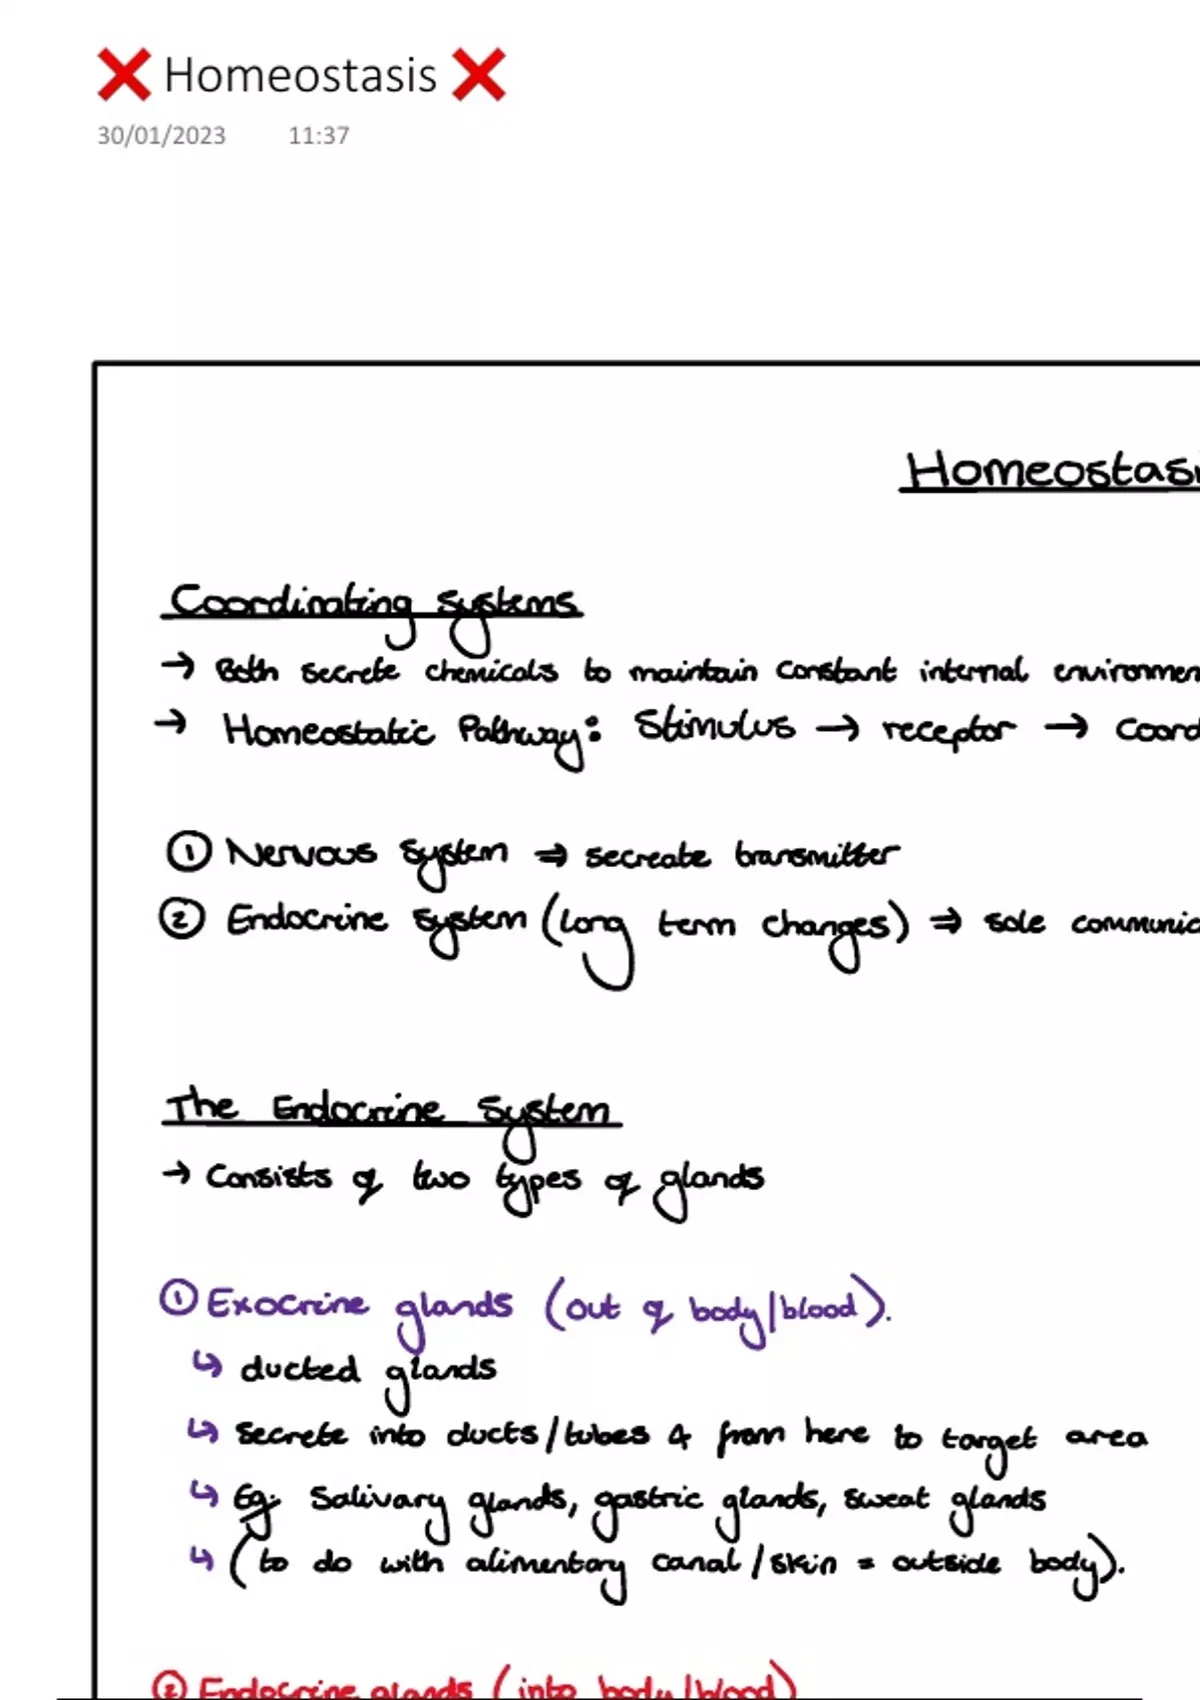 ❌ Homeostasis ❌
30/01/2023 11:37
Homeostasi
Coordinating systems
→ Both secrete chemicals to maintain constant internal environmen
→ Homeostatic Pathway: Stimulus → receptor → Coord
① Nervous system ⇒ secreate transmitter
② Endocrine system (long term changes) ⇒ sole communic
The Endocrine System
→ Consists of two types of glands
① Exocrine glands (out of body/blood).
↳ ducted glands
↳ Secrete into ducts/tubes & from here to target area
↳ Eg: Salivary glands, gastric glands, sweat glands
↳ (to do with alimentary canal/skin = outside body).
② Endocrine glands (into body/blood)